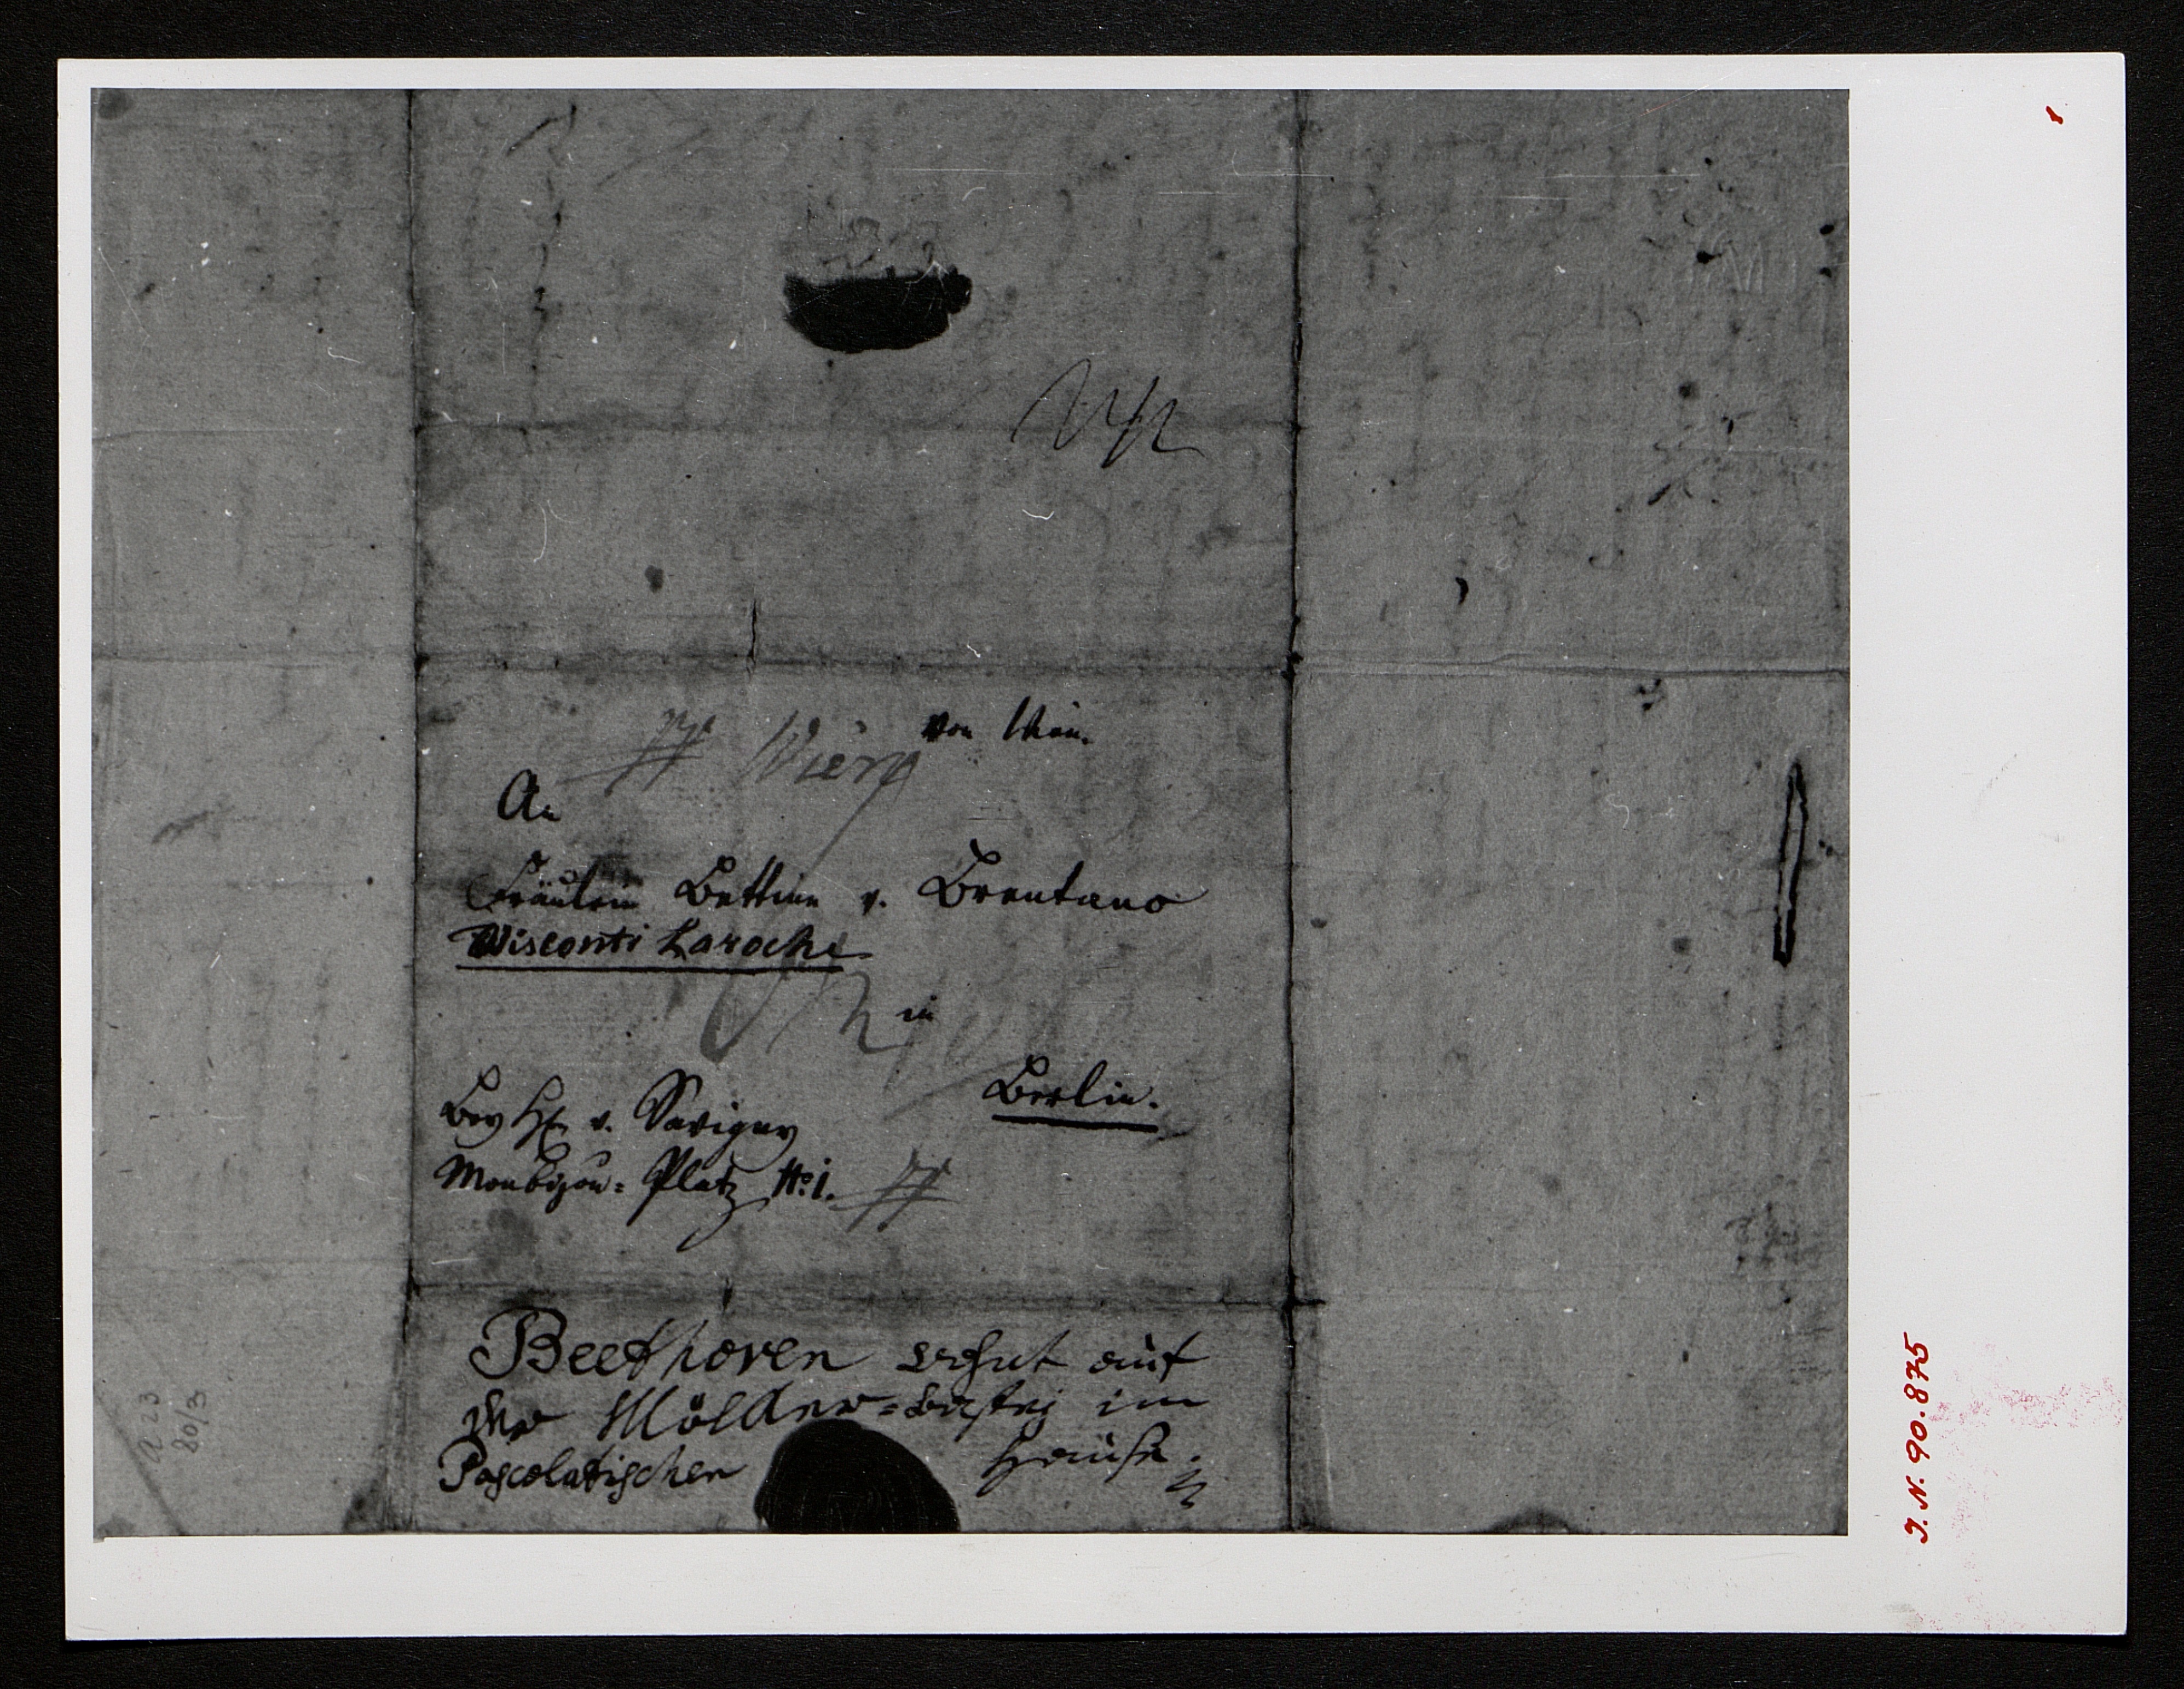 von Wien.
Wien
An
Fräulein Bettine v. Brentano
Visconti Laroche
in
Berlin.
Bey H. v. Savigny
Monbijou= Platz No: 1.
Beethoven wohnt auf
der Mölker=bastej im
Pascolatischen Hause.
a 23
80/3
J. N. 90.875
1